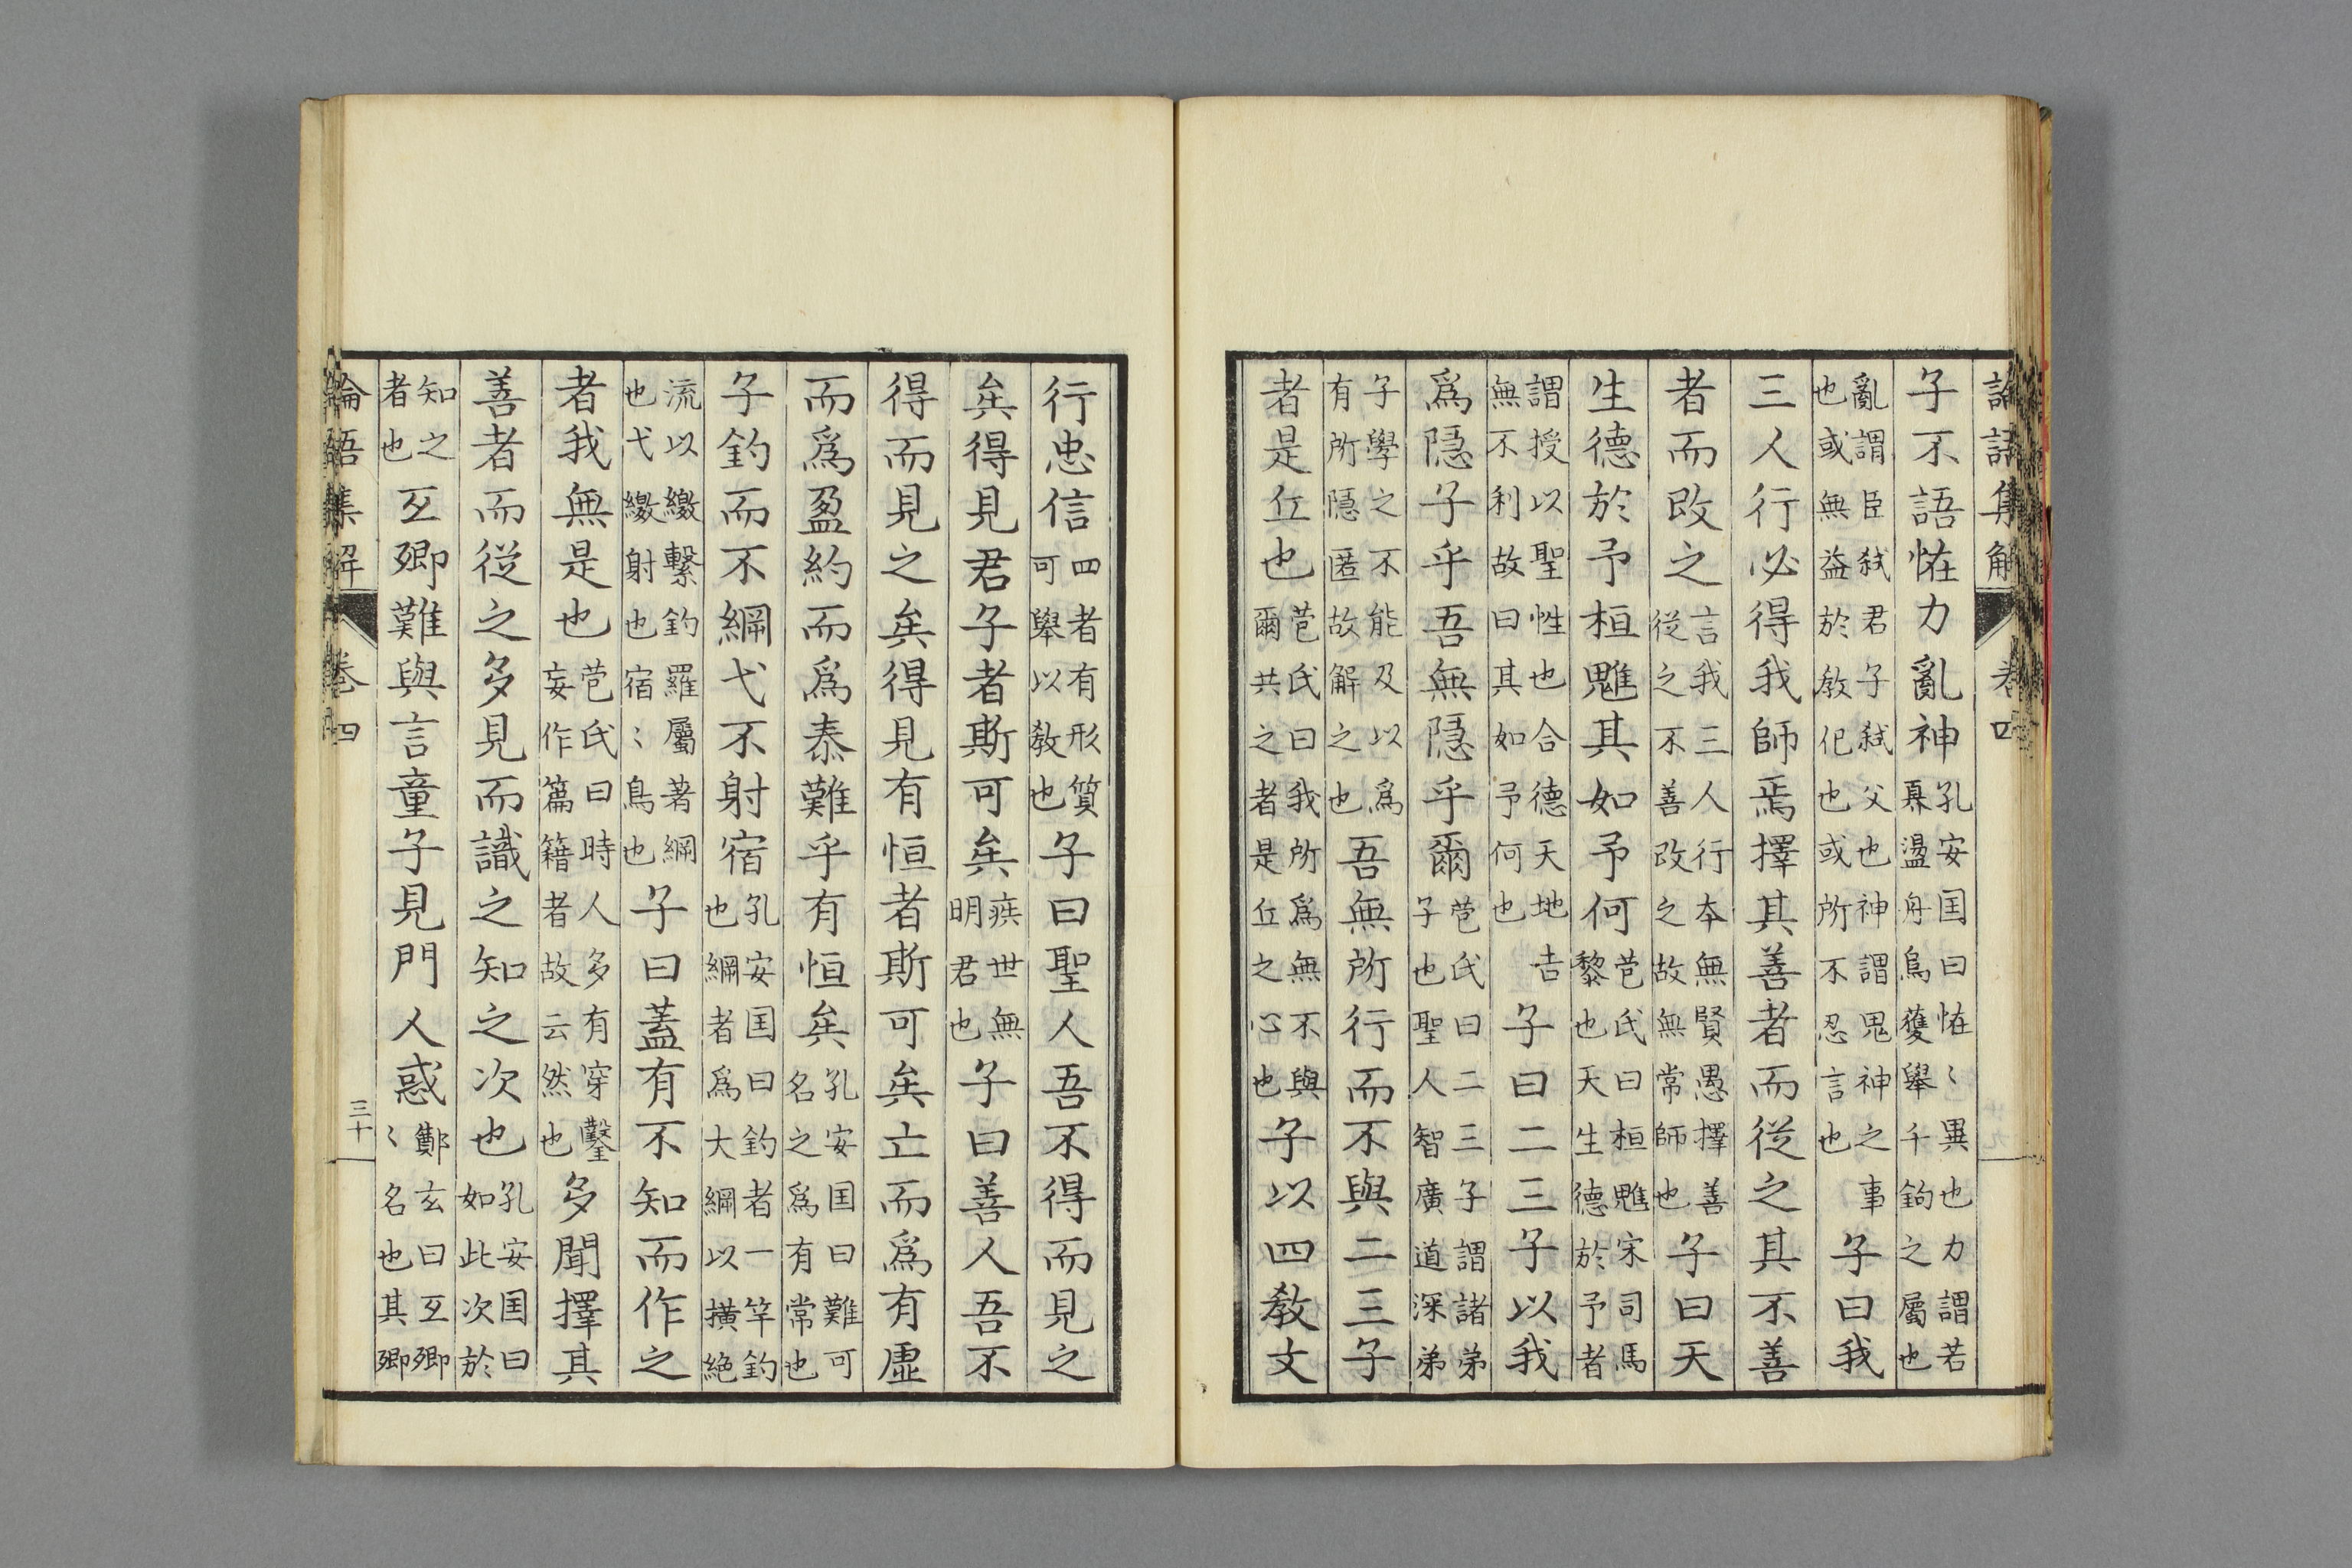 論語集解 卷四
子不語恠力亂神孔安囯曰恠〻異也力謂若奡盪舟烏獲舉千鈞之屬也
亂謂臣弑君子弑父也神謂鬼神之事也或無益於敎化也或所不忍言也子曰我
三人行必得我師焉擇其善者而從之其不善
者而改之言我三人行本無賢愚擇善從之不善改之故無常師也子曰天
生德於予桓魋其如予何苞氏曰桓魋宋司馬黎也天生德於予者
謂授以聖性也合德天地吉無不利故曰其如予何也子曰二三子以我
爲隱子乎吾無隱乎爾苞氏曰二三子謂諸弟子也聖人智廣道深弟
子學之不能及以爲有所隱匿故解之也吾無所行而不與二三子
者是丘也苞氏曰我所爲無不與爾共之者是丘之心也子以四敎文
行忠信四者有形質可舉以敎也子曰聖人吾不得而見之
矣得見君子者斯可矣疾世無明君也子曰善人吾不
得而見之矣得見有恒者斯可矣亡而爲有虛
而爲盈約而爲泰難乎有恒矣孔安囯曰難可名之爲有常也
子釣而不綱弋不射宿孔安囯曰釣者一竿釣也綱者爲大綱以橫絕
流以繳繫釣羅屬著綱也弋繳射也宿〻鳥也子曰蓋有不知而作之
者我無是也苞氏曰時人多有穿鑿妄作篇籍者故云然也多聞擇其
善者而從之多見而識之知之次也孔安囯曰如此次於
知之者也互鄉難與言童子見門人惑鄭玄曰互鄉〻名也其鄉
論語集解 卷四 三十